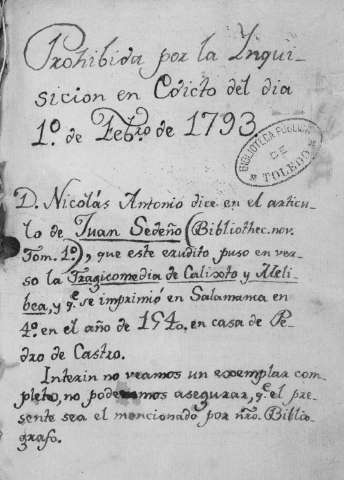 Prohibida por la Ynqui-
sicion en Edicto del dia
1º. de Febrº. de 1793.
BIBLIOTECA PÚBLICA
DE
TOLEDO
D. Nicolás Antonio dice en el articu-
lo de Juan Sedeño (Bibliothec. nov.
Tom. 1º), que este erudito, puso en ver-
so la Tragicomedia de Calixto y Meli-
bea, y qᵉ. se imprimió en Salamama en
4º. en el año de 1540. en casa de Pe-
dro de Castro.
Interin no veamos un exemplar com-
pleto, no podemos asegurar, qᵉ. el pre-
sente sea el mencionado por nrō. Biblio-
grafo.